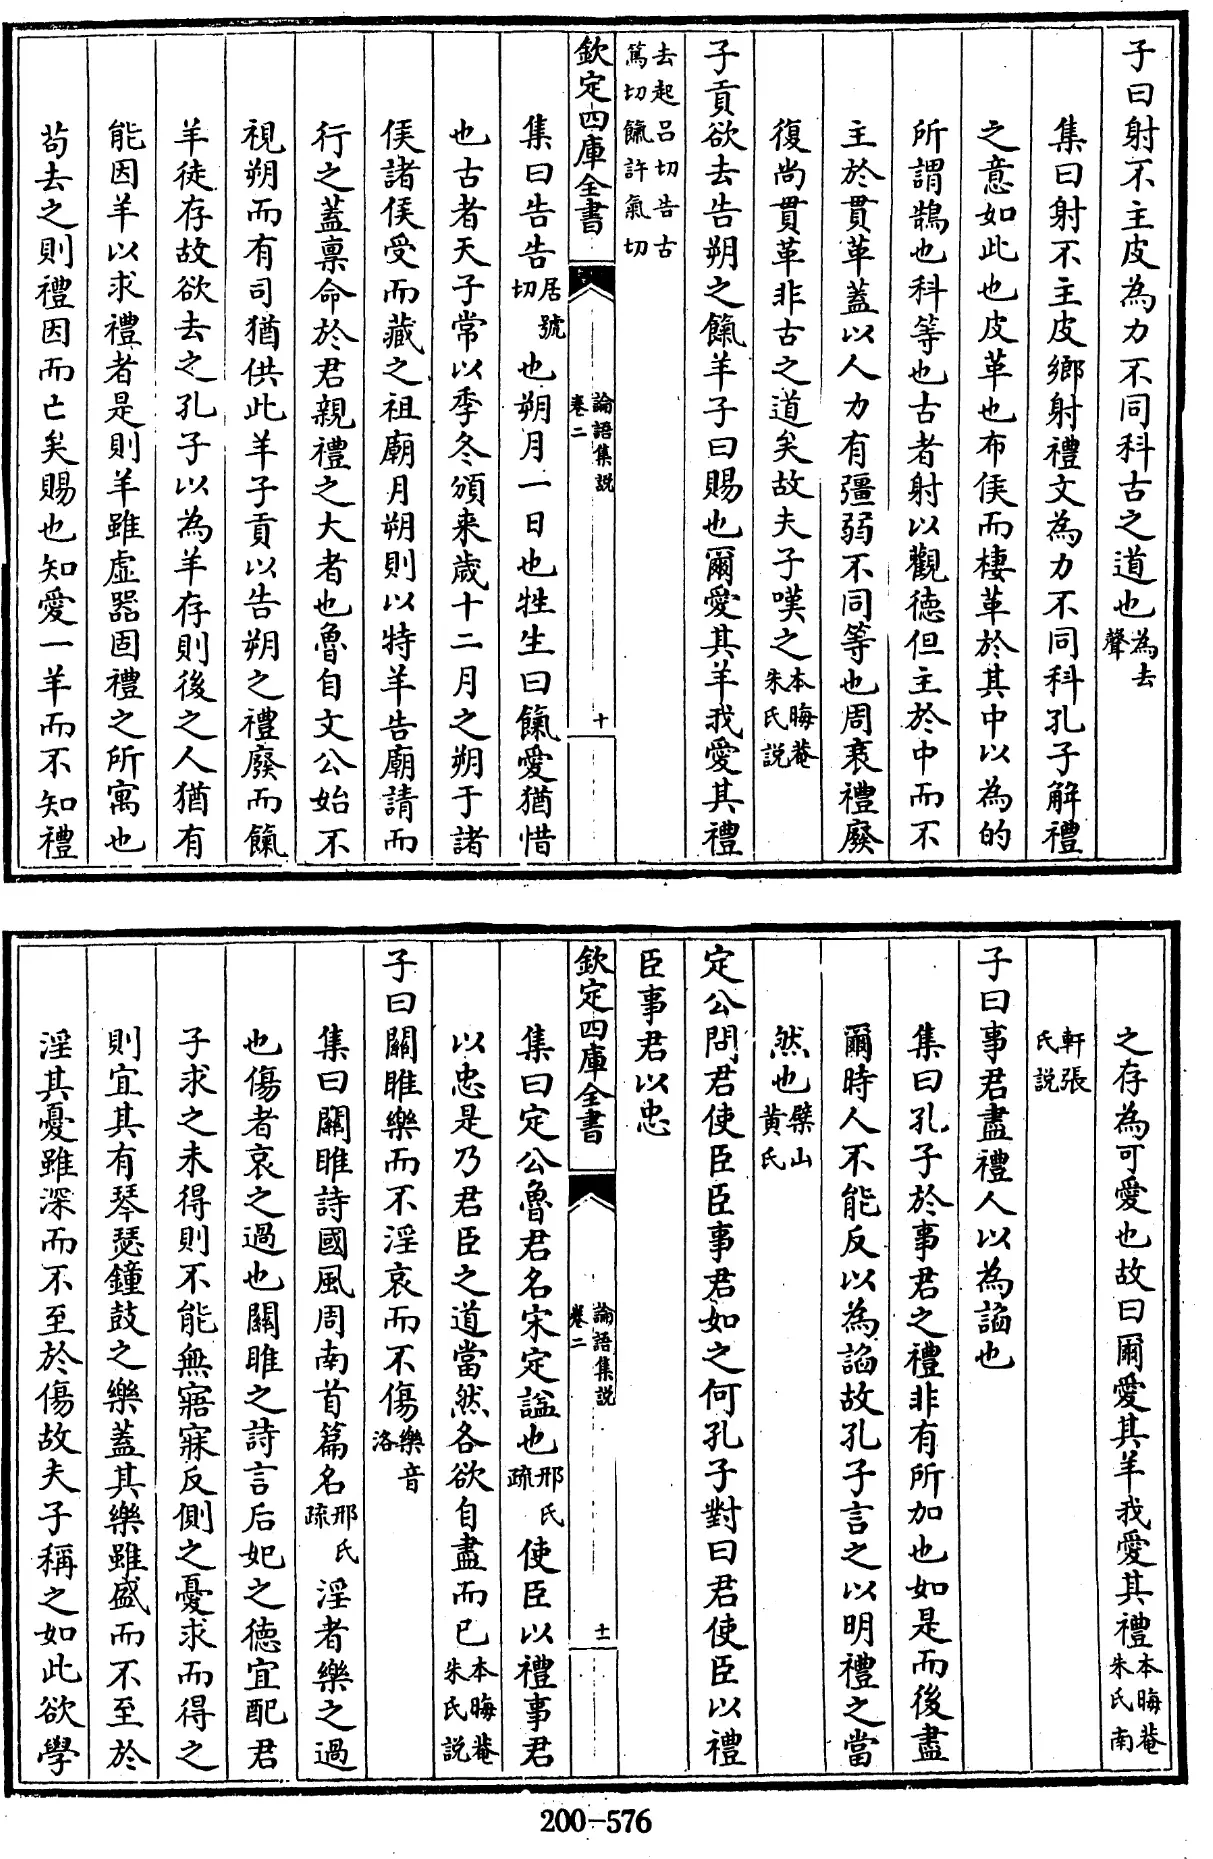 子曰射不主皮為力不同科古之道也為去聲
集曰射不主皮鄉射禮文為力不同科孔子解禮
之意如此也皮革也布侯而棲革於其中以為的
所謂鵠也科等也古者射以觀德但主於中而不
主於貫革蓋以人力有彊弱不同等也周衰禮廢
復尚貫革非古之道矣故夫子嘆之本晦菴朱氏說
子貢欲去告朔之餼羊子曰賜也爾愛其羊我愛其禮
去起呂切告古篤切餼許氣切
欽定四庫全書
論語集說
卷二
十
集曰告告居號切也朔月一日也牲生曰餼愛猶惜
也古者天子常以季冬頒来歲十二月之朔于諸
侯諸侯受而藏之祖廟月朔則以特羊告廟請而
行之蓋稟命於君親禮之大者也魯自文公始不
視朔而有司猶供此羊子貢以告朔之禮廢而餼
羊徒存故欲去之孔子以為羊存則後之人猶有
能因羊以求禮者是則羊雖虛器固禮之所寓也
茍去之則禮因而亡矣賜也知愛一羊而不知禮
之存為可愛也故曰爾愛其羊我愛其禮本晦菴朱氏南
軒張氏說
子曰事君盡禮人以為諂也
集曰孔子於事君之禮非有所加也如是而後盡
爾時人不能反以為諂故孔子言之以明禮之當
然也檗山黃氏
定公問君使臣臣事君如之何孔子對曰君使臣以禮
臣事君以忠
欽定四庫全書
論語集說
卷二
十一
集曰定公魯君名宋定諡也邢氏疏使臣以禮事君
以忠是乃君臣之道當然各欲自盡而已本晦菴朱氏說
子曰關雎樂而不淫哀而不傷樂音洛
集曰關雎詩國風周南首篇名邢氏疏淫者樂之過
也傷者哀之過也關雎之詩言后妃之德宜配君
子求之未得則不能無寤寐反側之憂求而得之
則宜其有琴瑟鐘鼓之樂蓋其樂雖盛而不至於
淫其憂雖深而不至於傷故夫子稱之如此欲學
200-576